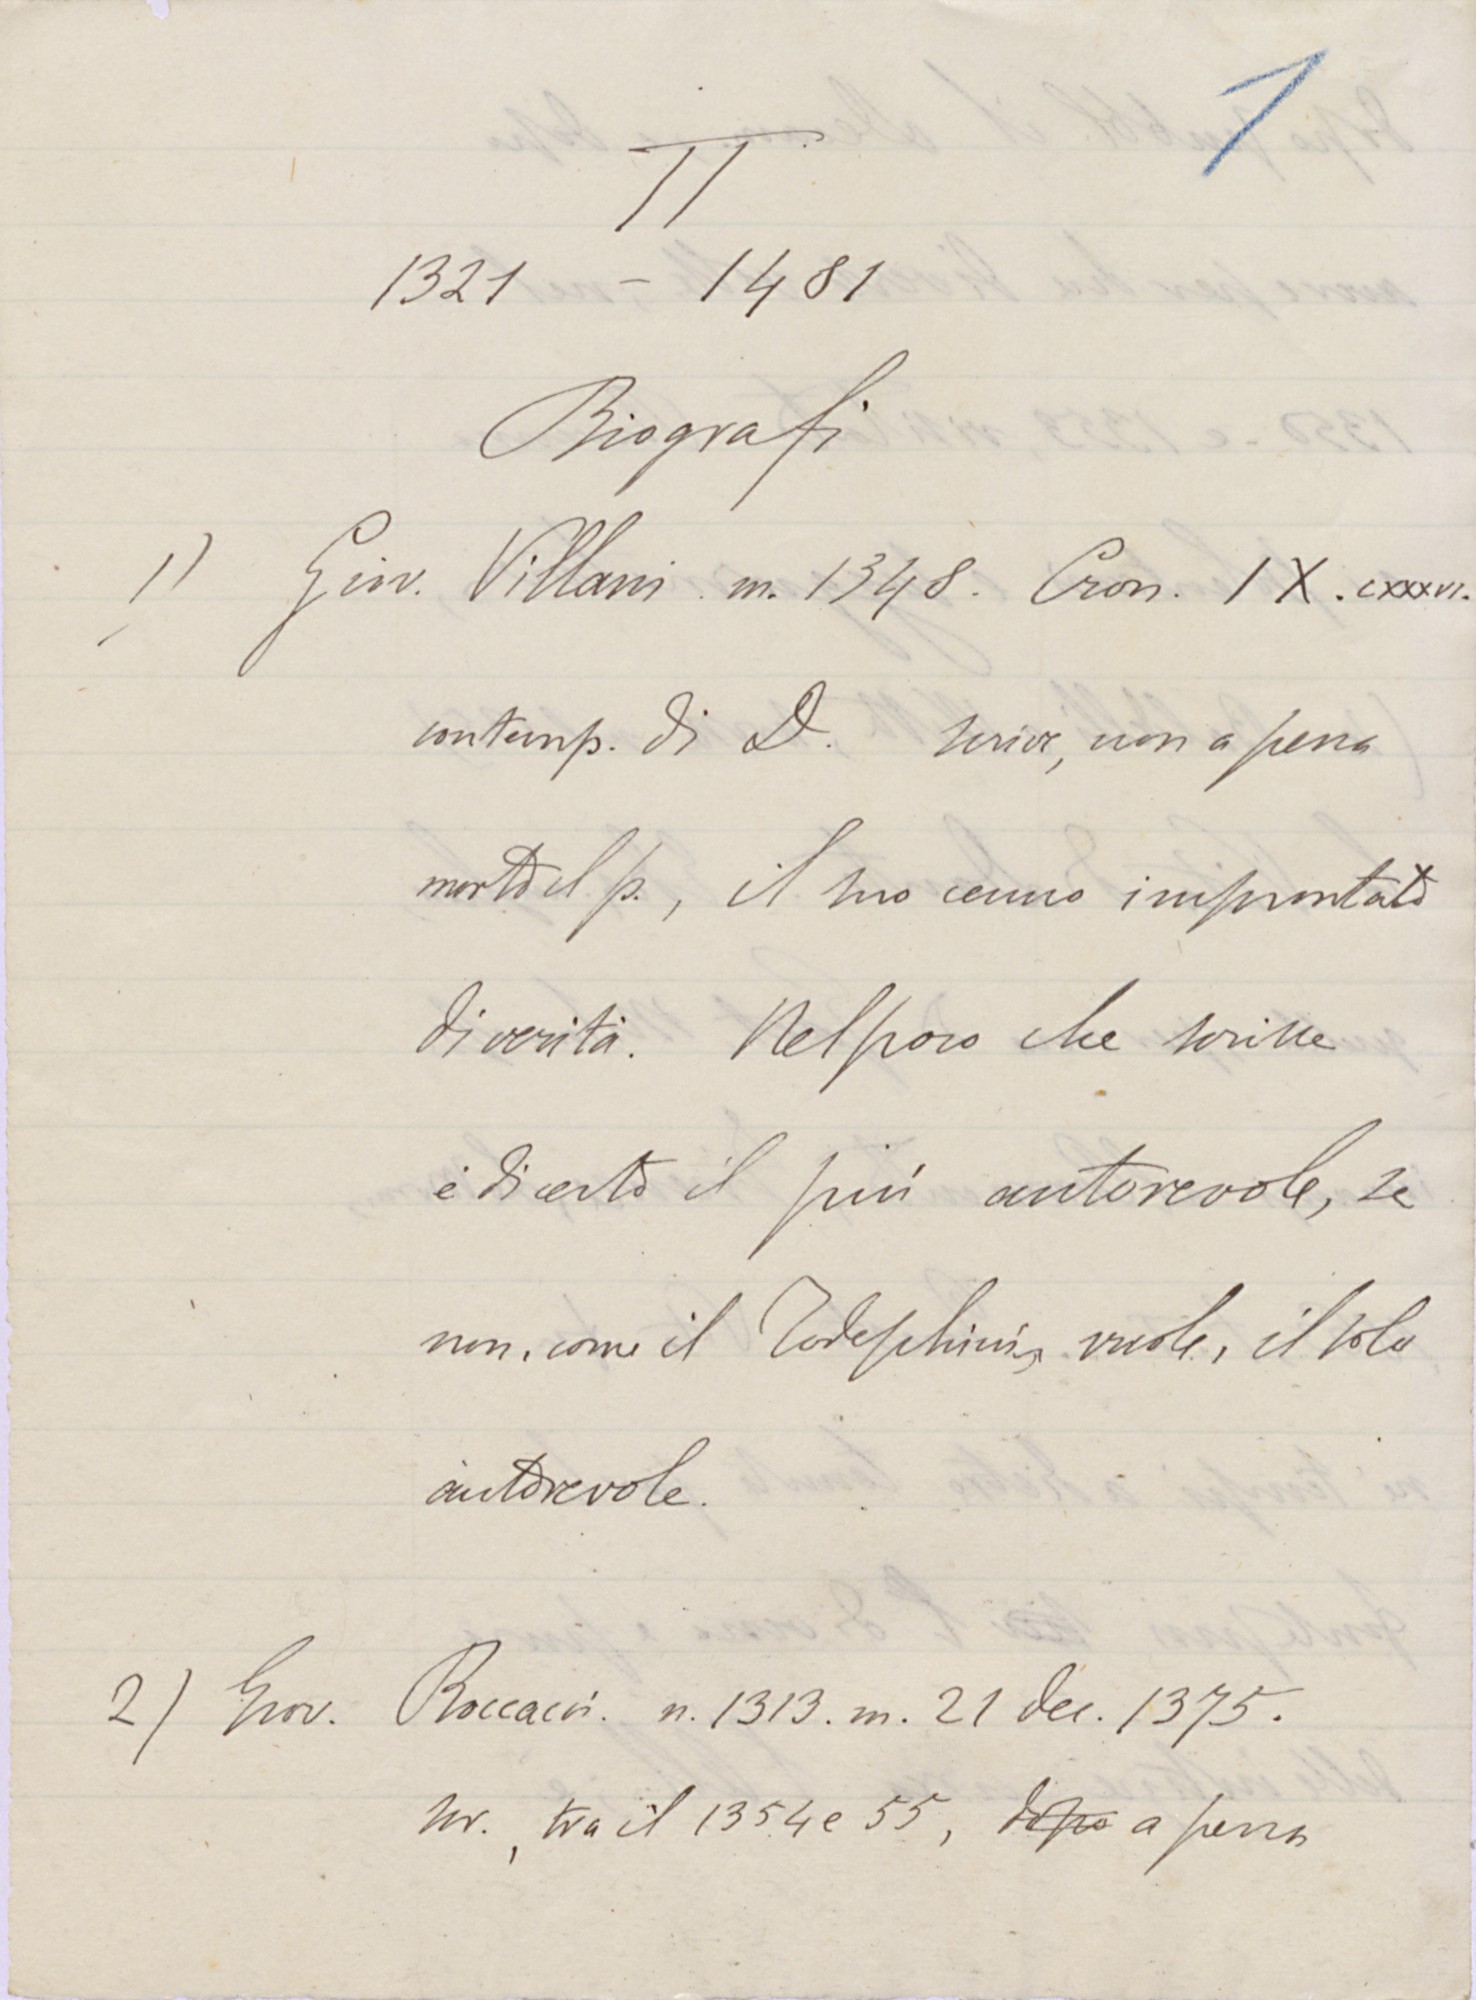 1
II
1321 - 1481
Biografi
1) Giov. Villani m. 1348. Cron. IX. CXXXVI.
contemp. di D. scrive, non a pena
morto il p., il suo cenno improntato
di verità. Nel poco che scrisse
è di certo il più autorevole, se
non, come il Todeschini, vuole, il solo
autorevole.
2) Giov. Boccacci. n. 1313. m. 21 dec. 1375.
scr., tra il 1354 e 55, dopo a pena